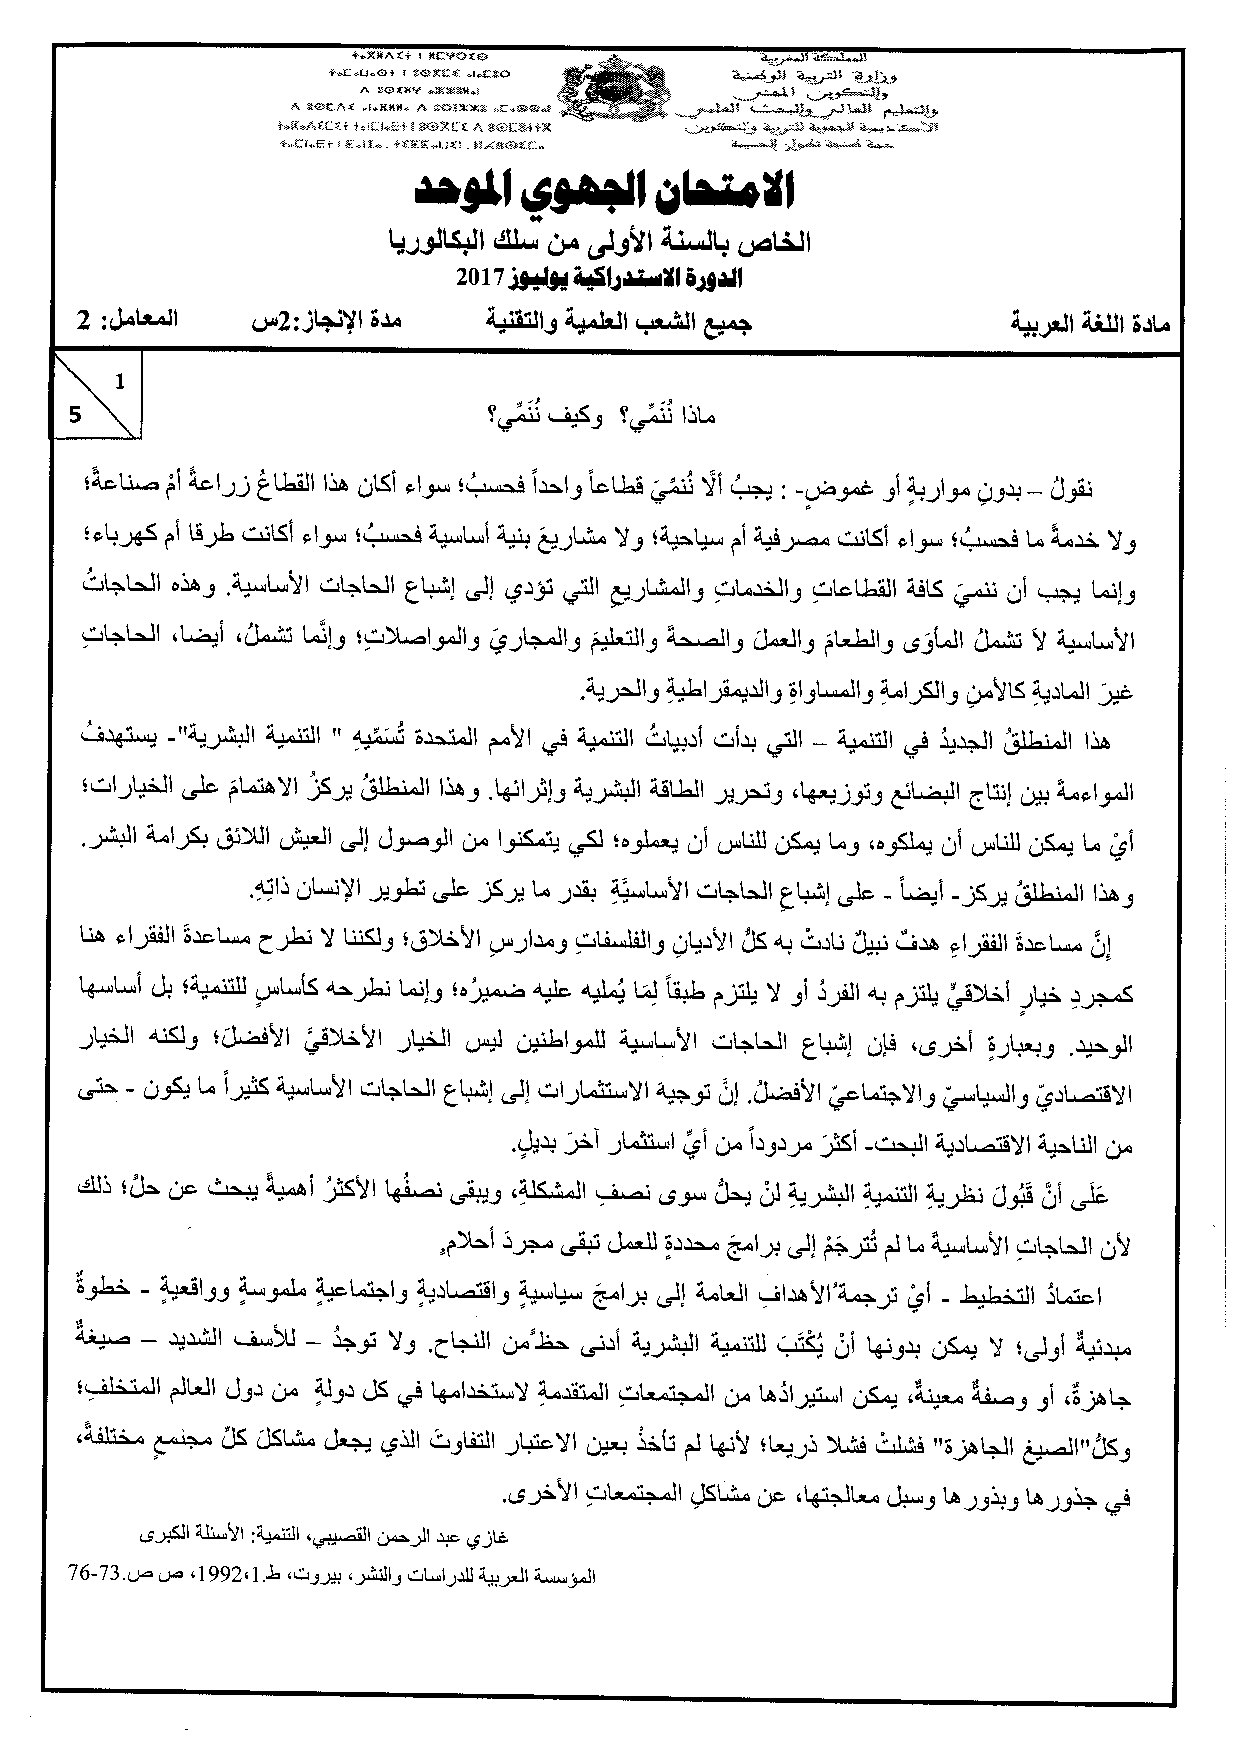 المملكة المغربية
وزارة التربية الوطنية
والتكوين المهني
والتعليم العالي والبحث العلمي
الأكاديمية الجهوية للتربية والتكوين
جهة طنجة تطوان الحسيمة
الامتحان الجهوي الموحد
الخاص بالسنة الأولى من سلك البكالوريا
الدورة الاستدراكية يوليوز 2017
مادة اللغة العربية جميع الشعب العلمية والتقنية مدة الإنجاز:2س المعامل: 2
1
5
ماذا نُنَمِّي؟ وكيف نُنَمِّي؟
نقولُ – بدونِ مواربةٍ أو غموضٍ- : يجبُ ألَّا نُنمِّيَ قطاعاً واحداً فحسبُ؛ سواء أكان هذا القطاعُ زراعةً أمْ صناعةً؛
ولا خدمةً ما فحسبُ؛ سواء أكانت مصرفية أم سياحية؛ ولا مشاريعَ بنية أساسية فحسبُ؛ سواء أكانت طرقا أم كهرباء؛
وإنما يجب أن ننميَ كافة القطاعاتِ والخدماتِ والمشاريعِ التي تؤدي إلى إشباع الحاجات الأساسية. وهذه الحاجاتُ
الأساسية لا تشملُ المأوَى والطعامَ والعملَ والصحةَ والتعليمَ والمجاريَ والمواصلاتِ؛ وإنَّما تشملُ، أيضا، الحاجاتِ
غيرَ الماديةِ كالأمنِ والكرامةِ والمساواةِ والديمقراطيةِ والحرية.
هذا المنطلقُ الجديدُ في التنمية – التي بدأت أدبياتُ التنمية في الأمم المتحدة تُسَمِّيهِ " التنمية البشرية"- يستهدفُ
المواءمةَ بين إنتاج البضائع وتوزيعها، وتحرير الطاقة البشرية وإثرائها. وهذا المنطلقُ يركزُ الاهتمامَ على الخيارات؛
أيْ ما يمكن للناس أن يملكوه، وما يمكن للناس أن يعملوه؛ لكي يتمكنوا من الوصول إلى العيش اللائق بكرامة البشر.
وهذا المنطلقُ يركز- أيضاً - على إشباعِ الحاجات الأساسيَّةِ بقدر ما يركز على تطوير الإنسان ذاتِهِ.
إنَّ مساعدةَ الفقراءِ هدفٌ نبيلٌ نادتْ به كلُّ الأديانِ والفلسفاتِ ومدارسِ الأخلاق؛ ولكننا لا نطرح مساعدةَ الفقراء هنا
كمجردِ خيارٍ أخلاقيٍّ يلتزم به الفردُ أو لا يلتزم طبقاً لِمَا يُمليه عليه ضميرُه؛ وإنما نطرحه كأساسٍ للتنمية؛ بل أساسها
الوحيد. وبعبارةٍ أخرى، فإن إشباع الحاجات الأساسية للمواطنين ليس الخيار الأخلاقيَّ الأفضلَ؛ ولكنه الخيار
الاقتصاديّ والسياسيّ والاجتماعيّ الأفضلُ. إنَّ توجيه الاستثمارات إلى إشباع الحاجات الأساسية كثيراً ما يكون - حتى
من الناحية الاقتصادية البحت- أكثرَ مردوداً من أيِّ استثمار آخرَ بديلٍ.
عَلَى أنَّ قَبُولَ نظريةِ التنميةِ البشريةِ لنْ يحلَّ سوى نصفِ المشكلةِ، ويبقى نصفُها الأكثرُ أهميةً يبحث عن حلٍّ؛ ذلك
لأن الحاجاتِ الأساسيةَ ما لم تُترجَمْ إلى برامجَ محددةٍ للعمل تبقى مجردَ أحلامٍ.
اعتمادُ التخطيط - أيْ ترجمةُ الأهدافِ العامة إلى برامجَ سياسيةٍ واقتصاديةٍ واجتماعيةٍ ملموسةٍ وواقعيةٍ - خطوةٌ
مبدئيةٌ أولى؛ لا يمكن بدونها أنْ يُكْتَبَ للتنمية البشرية أدنى حظٍّ من النجاح. ولا توجدُ – للأسف الشديد – صيغةٌ
جاهزةٌ، أو وصفةٌ معينةٌ، يمكن استيرادُها من المجتمعاتِ المتقدمةِ لاستخدامها في كل دولةٍ من دول العالم المتخلفِ؛
وكلُّ"الصيغِ الجاهزة" فشلتْ فشلا ذريعا؛ لأنها لم تأخذْ بعين الاعتبار التفاوتَ الذي يجعل مشاكلَ كلِّ مجتمعٍ مختلفةً،
في جذورها وبذورها وسبل معالجتها، عن مشاكلِ المجتمعاتِ الأخرى.
غازي عبد الرحمن القصيبي، التنمية: الأسئلة الكبرى
المؤسسة العربية للدراسات والنشر، بيروت، ط.1، 1992، ص ص.73-76